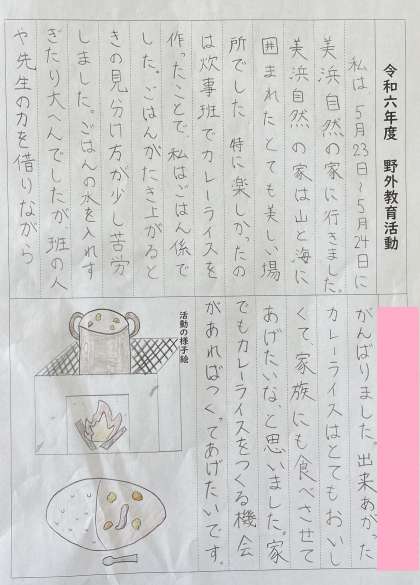 令和六年度　野外教育活動
私は、5月23日〜5月24日に
美浜自然の家に行きました。
美浜自然の家は山と海に
囲まれたとても美しい場
所でした。特に楽しかったの
は炊事班でカレーライスを
作ったことで、私はごはん係で
した。ごはんがたき上がると
きの見分け方が少し苦労
しました。ごはんの水を入れす
ぎたり大へんでしたが、班の人
や先生の力を借りながら
がんばりました。出来あがった
カレーライスはとてもおいし
くて、家族にも食べさせて
あげたいな、と思いました。家
でもカレーライスをつくる機会
があればつくってあげたいです。
活動の様子絵